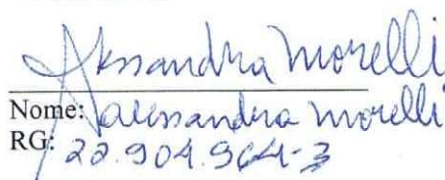 Alessandra Morelli
Nome: Alessandra Morelli
RG: 22.904.964-3